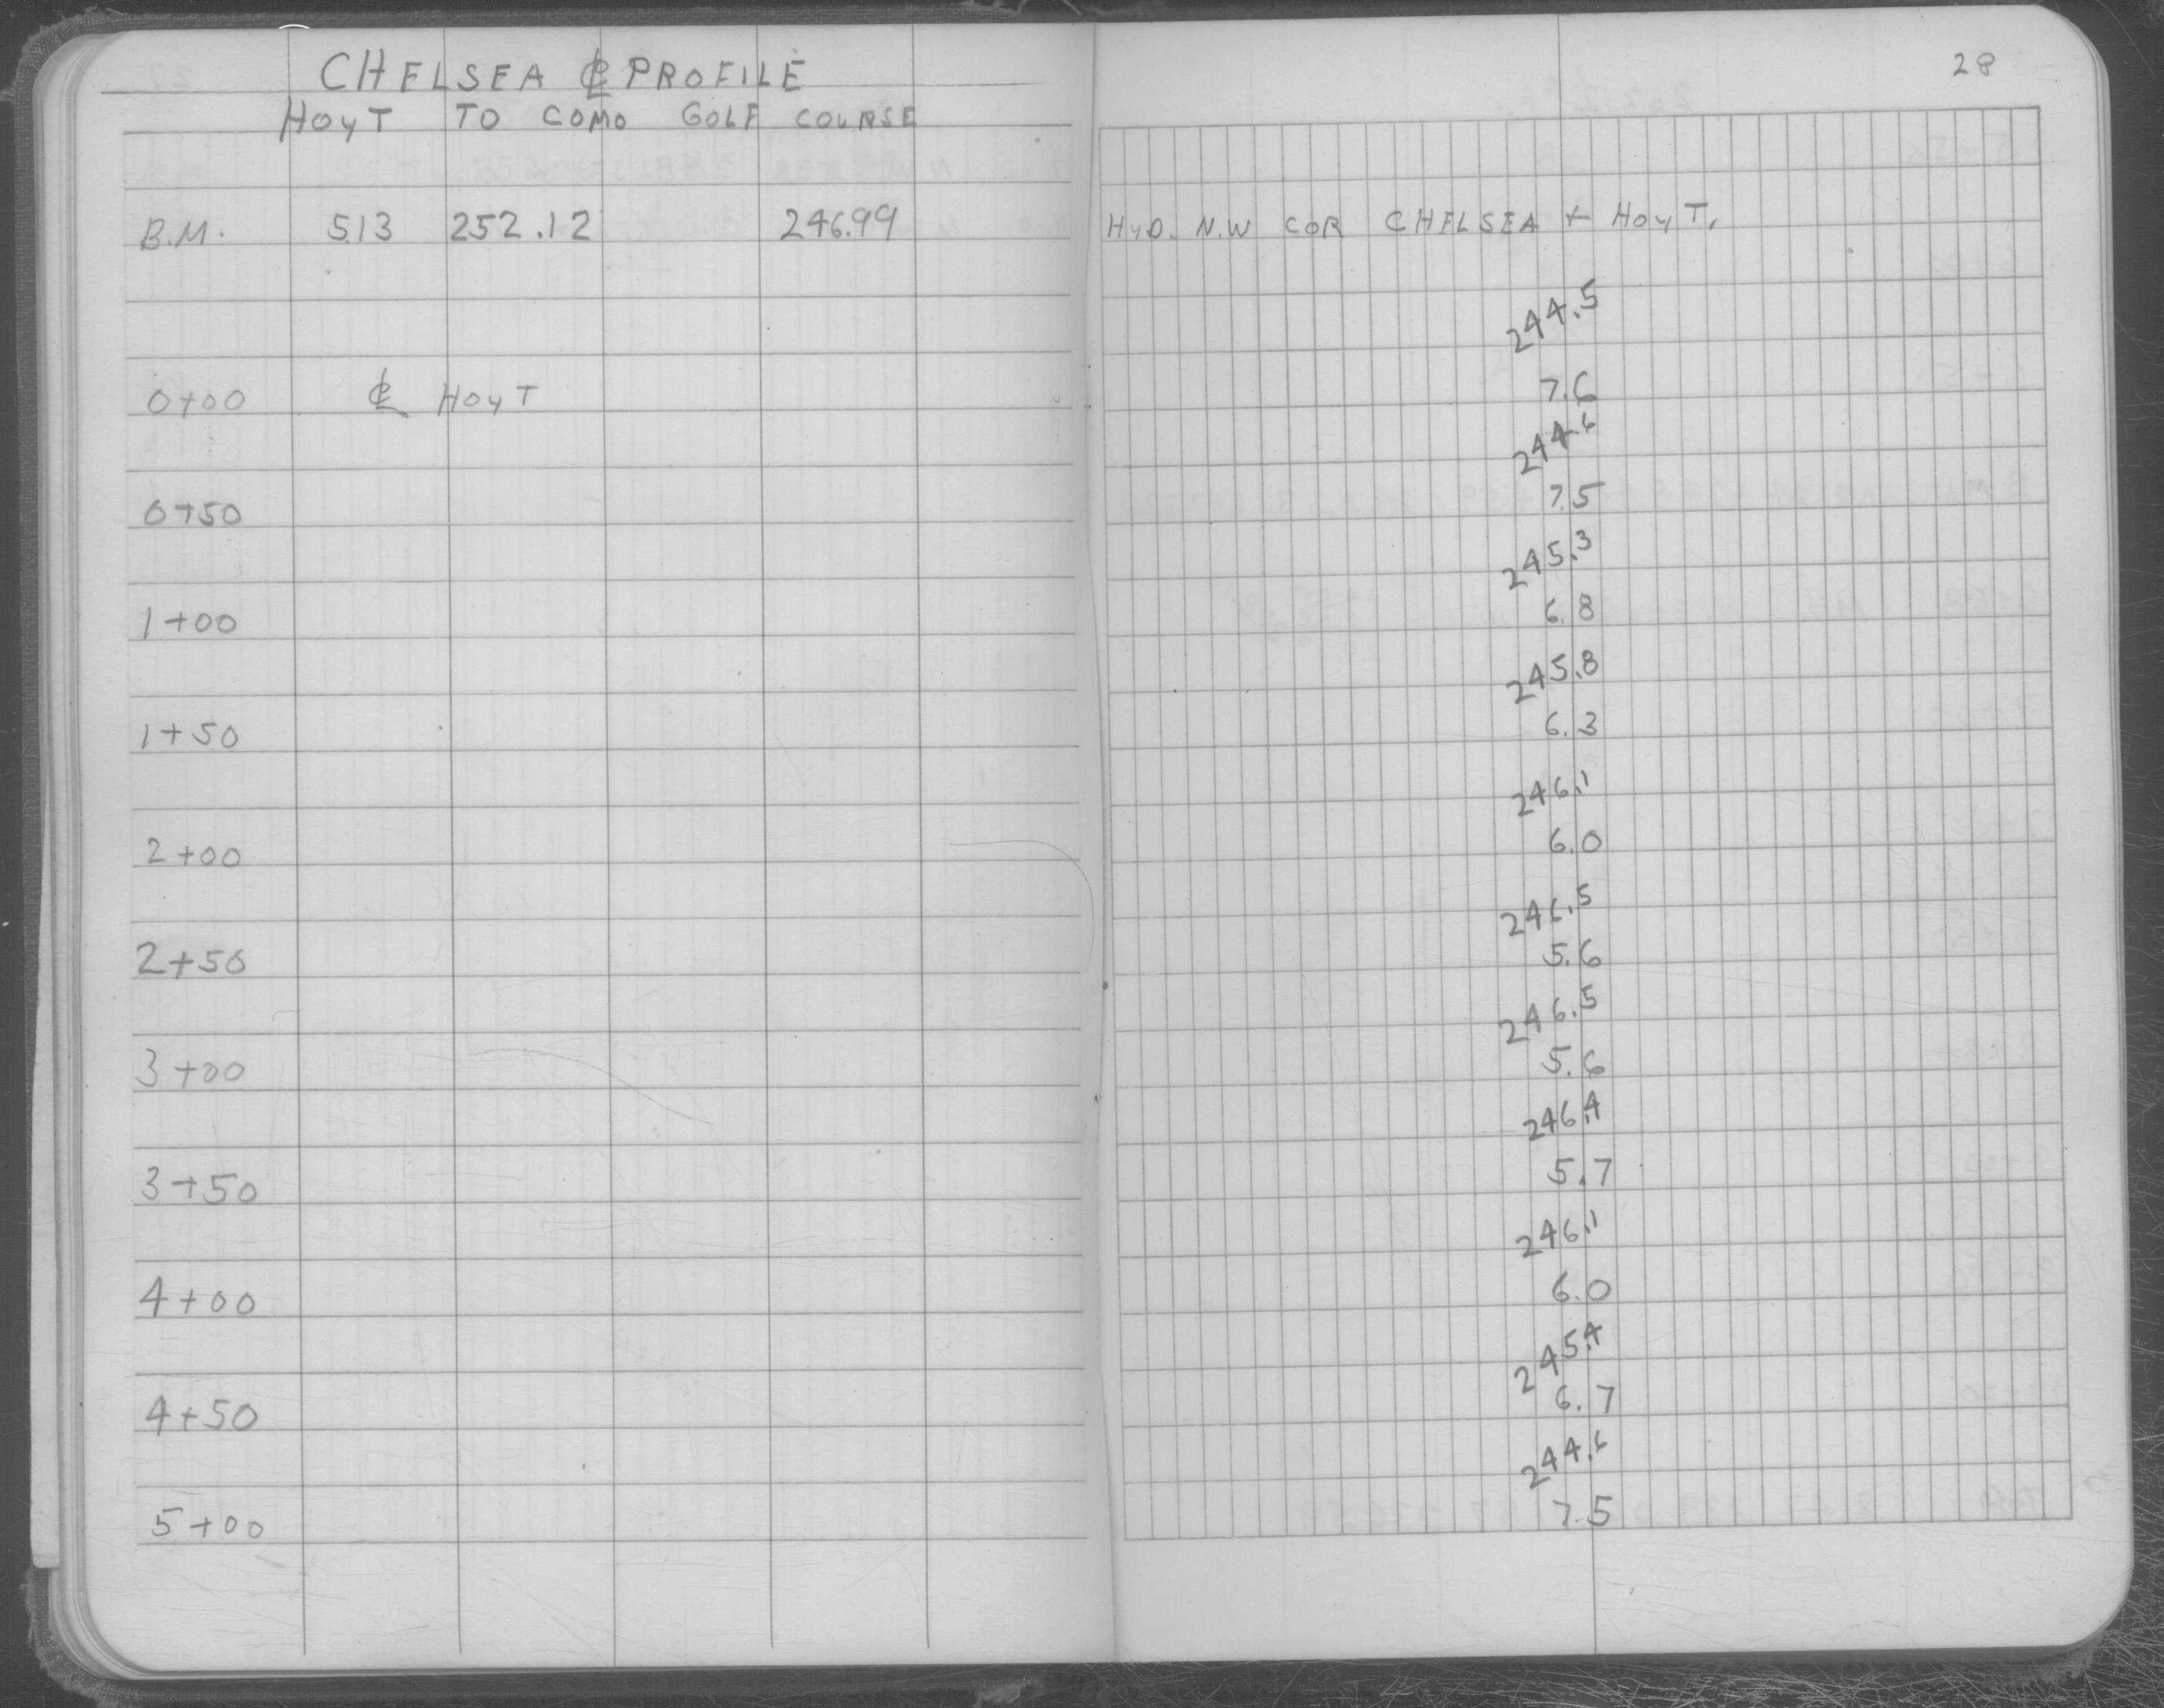 28
CHELSEA ℄ PROFILE
HOYT TO COMO GOLF COURSE
B.M. 5.13 252.12 246.99 HYD. N.W COR CHELSEA + HOYT.
244.5
0+00 ℄ HOYT 7.6
244.6
0+50 7.5
245.3
1+00 6.8
245.8
1+50 6.3
246.1
2+00 6.0
246.5
2+50 5.6
246.5
3+00 5.6
246.4
3+50 5.7
246.1
4+00 6.0
245.4
4+50 6.7
244.6
5+00 7.5